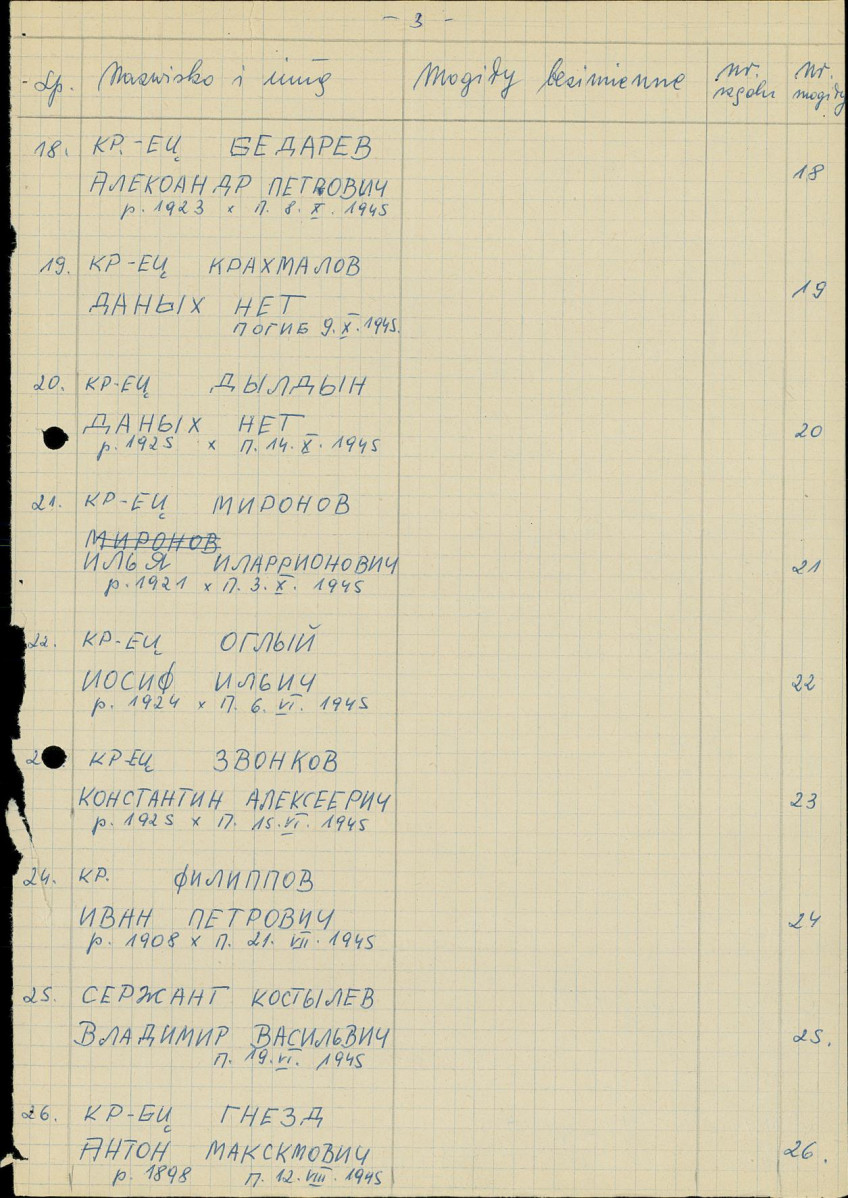 - 3 -
Lp. Nazwisko i imię Mogiły bezimienne Nr. Nr.
mogiły
18. КР.-ЕЦ БЕДАРЕВ
18
АЛЕКОАНДР ПЕТРОВИЧ
р. 1923 x П. 8. X. 1945
19. КР-ЕЦ КРАХМАЛОВ
19
ДАНЫХ НЕТ
ПОГИБ 9. X. 1945.
20. КР-ЕЦ ДЫЛДЫН
ДАНЫХ НЕТ 20
р. 1925 x П. 14. X. 1945
21. КР-ЕЦ МИРОНОВ
МИРОНОВ
ИЛЬЯ ИЛАРРИОНОВИЧ 21
р. 1921 x П. 3. X. 1945
22. КР-ЕЦ ОГЛЫЙ
ИОСИФ ИЛЬИЧ 22
р. 1924 x П. 6. VI. 1945
2 КР-ЕЦ ЗВОНКОВ
КОНСТАНТИН АЛЕКСЕЕРИЧ 23
р. 1925 x П. 15. VI. 1945
24. КР. ФИЛИППОВ
ИВАН ПЕТРОВИЧ 24
р. 1908 x П. 21. VII. 1945
25. СЕРЖАНТ КОСТЫЛЕВ
ВЛАДИМИР ВАСИЛЬВИЧ 25.
П. 19. VI. 1945
26. КР-БЦ ГНЕЗД
АНТОН МАКСКМОВИЧ 26.
р. 1898 П. 12. VIII. 1945